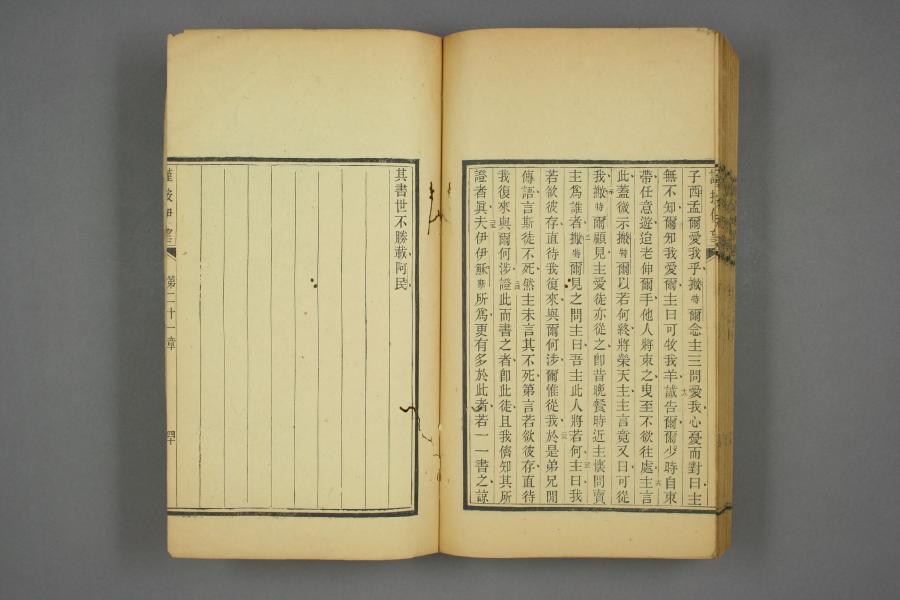 子西孟爾愛我乎撇特爾念主三問愛我心憂而對曰主
無不知爾知我愛爾主曰可牧我羊誠告爾爾少時自束
帶任意遊迨老伸爾手他人將束之曳至不欲往處主言
此蓋微示撇特爾以若何終將榮天主主言竟又曰可從
我撇特爾顧見主愛徒亦從之卽昔晩餐時近主懷問賣
主爲誰者撇特爾見之問主曰吾主此人將若何主曰我
若欲彼存直待我復來與爾何涉爾惟從我於是弟兄閒
傳語言斯徒不死然主未言其不死第言若欲彼存直待
我復來與爾何涉證此而書之者卽此徒且我儕知其所
證者眞夫伊伊穌斯所爲更有多於此者若一一書之諒
其書世不勝載阿民
第二十一章
四十